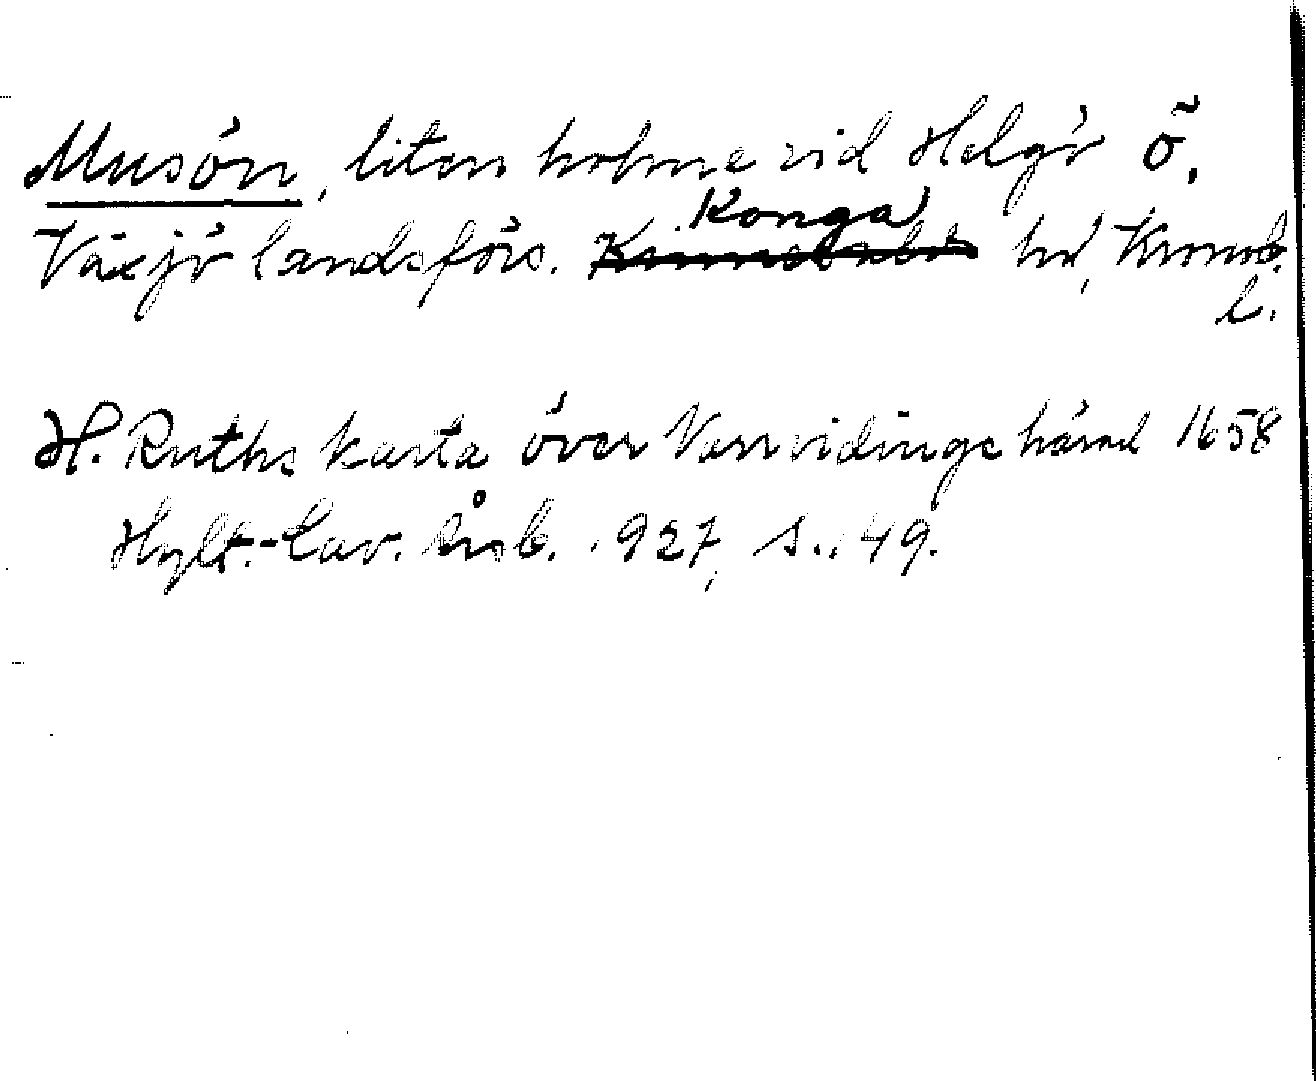 Musön, liten holme vid Helgö ö,
Växjö landsförs. Konga hd, Kronob.
l.
H. Ruths karta över Norrvidinge härad 1658
Hylt.-Cav. Årsb. 1927, s. 149.